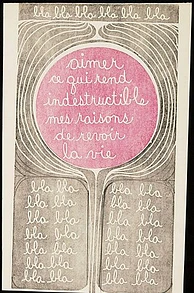 bla bla bla bla bla bla
aimer
ce qui rend
indestructible
mes raisons
de revoir
la vie
bla bla bla bla
bla bla bla bla
bla bla bla bla
bla bla bla bla
bla bla bla bla
bla bla bla bla
bla bla bla bla